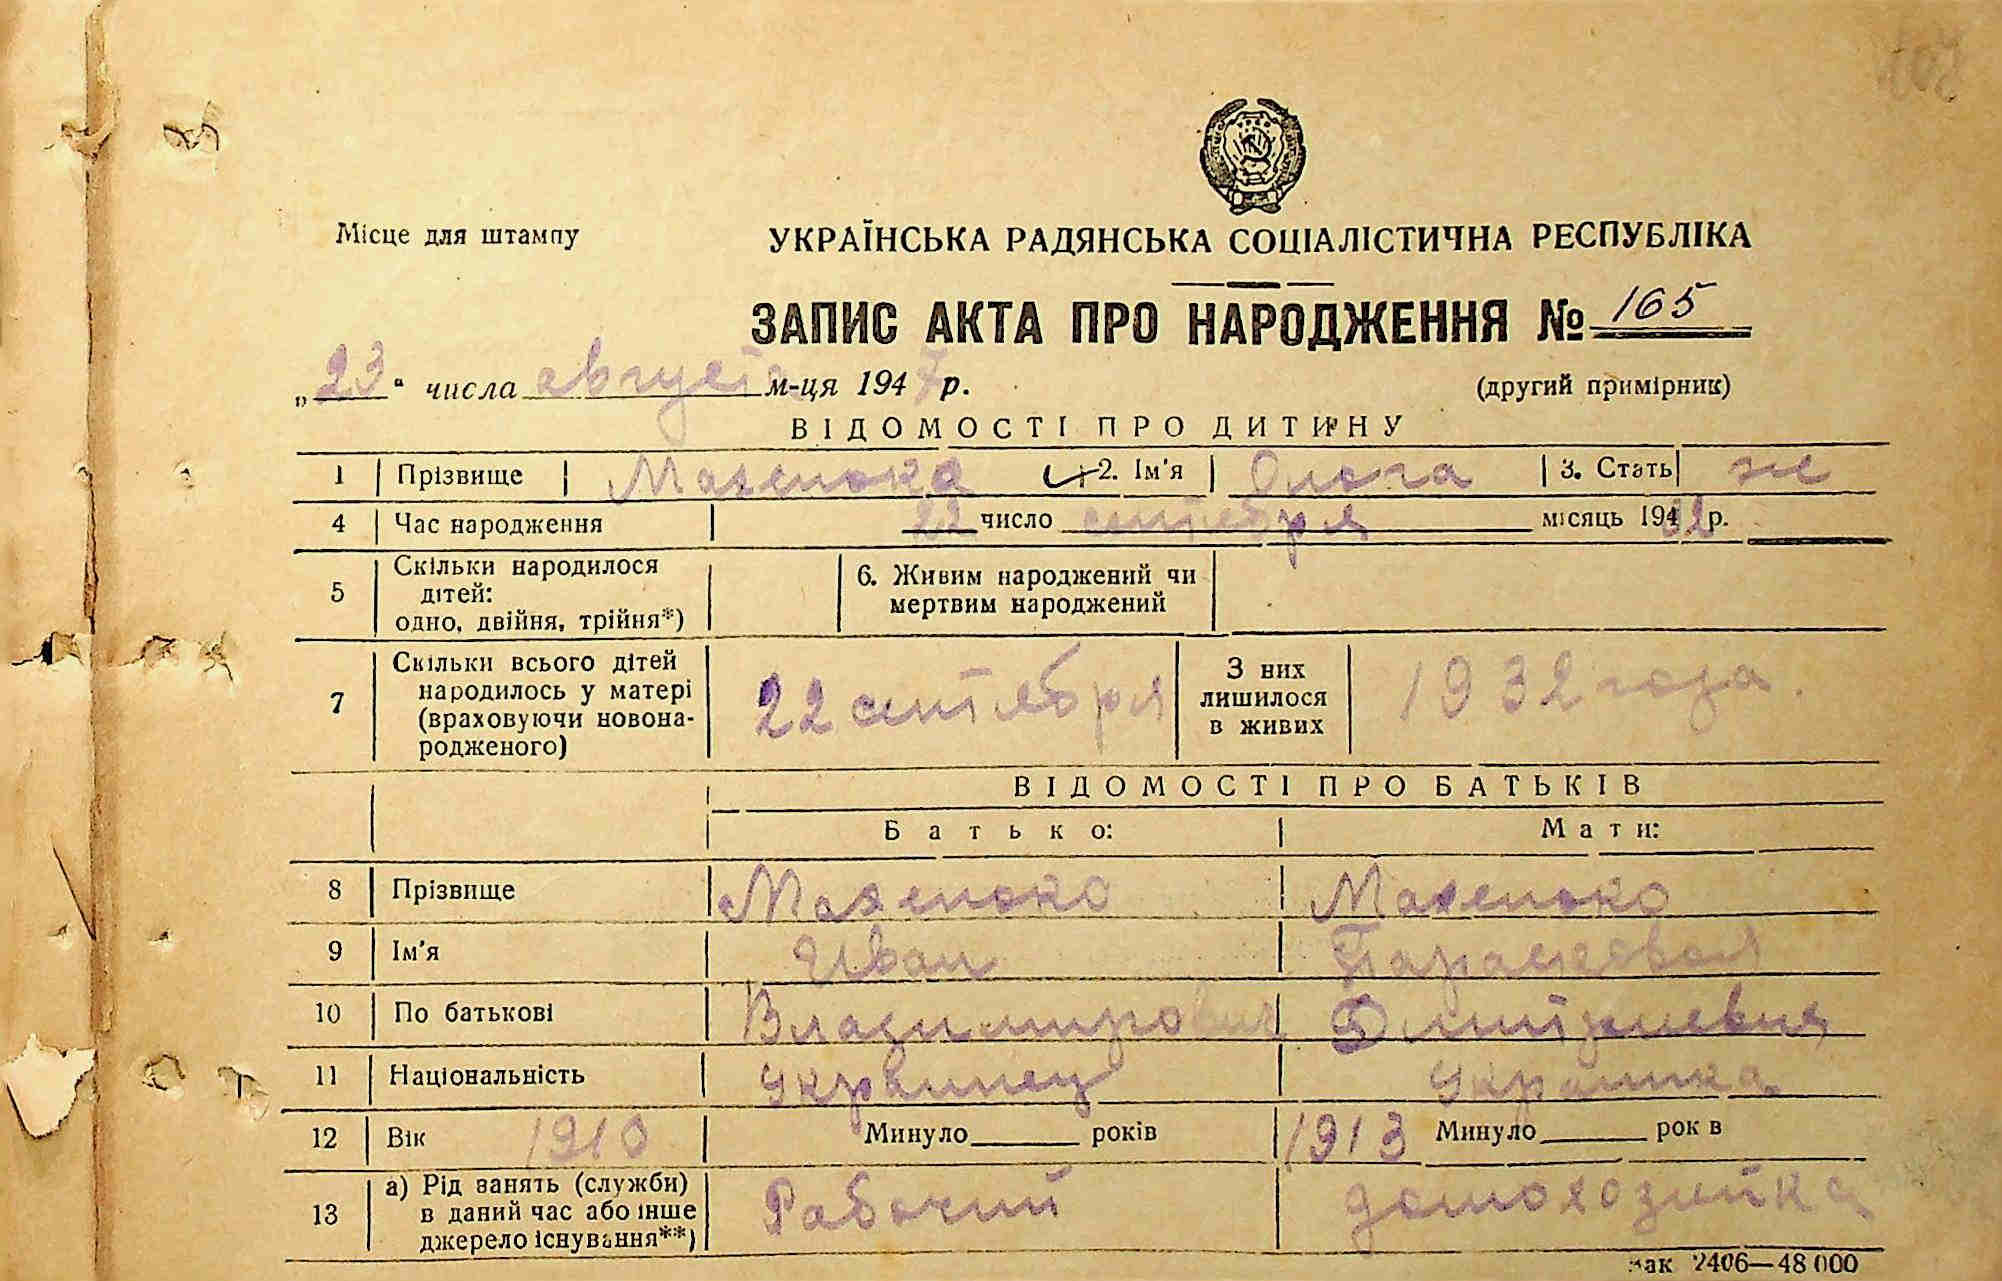 Місце для штампу
УКРАЇНСЬКА РАДЯНСЬКА СОЦІАЛІСТИЧНА РЕСПУБЛІКА
ЗАПИС АКТА ПРО НАРОДЖЕННЯ № 165
„23“ числа августа м-ця 1947 р.
(другий примірник)
ВІДОМОСТІ ПРО ДИТИНУ
1 Прізвище 2. Ім'я Ольга 3. Стать ж
4 Час народження 22 число сентября місяць 1932 р.
5 Скільки народилося дітей: одно, двійня, трійня*) 6. Живим народжений чи мертвим народжений
7 Скільки всього дітей народилось у матері (враховуючи новонародженого) 22 сентября З них лишилося в живих 1932 года.
ВІДОМОСТІ ПРО БАТЬКІВ
Батько: Мати:
8 Прізвище
9 Ім'я Иван
10 По батькові Владимирович Дмитриевна
11 Національність украинец украинка
12 Вік 1910 Минуло років 1913 Минуло рок в
13 а) Рід занять (служби) в даний час або інше джерело існування**) Рабочий домохозяйка
Зак 2406—48 000